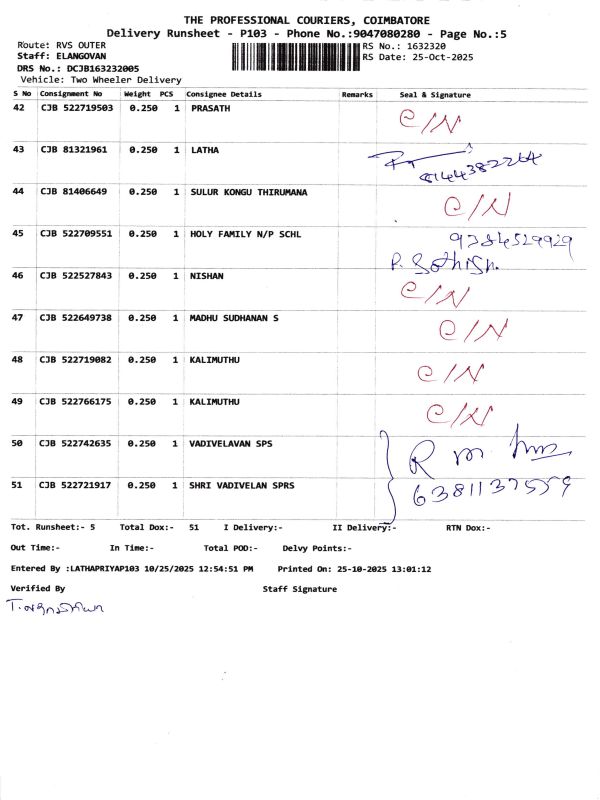 THE PROFESSIONAL COURIERS, COIMBATORE
Delivery Runsheet - P103 - Phone No.:9047080280 - Page No.:5
Route: RVS OUTER RS No.: 1632320
Staff: ELANGOVAN RS Date: 25-Oct-2025
DRS No.: DCJB163232005
Vehicle: Two Wheeler Delivery
S No Consignment No Weight PCS Consignee Details Remarks Seal & Signature
42 CJB 522719503 0.250 1 PRASATH C/N
43 CJB 81321961 0.250 1 LATHA
44 CJB 81406649 0.250 1 SULUR KONGU THIRUMANA C/N
45 CJB 522709551 0.250 1 HOLY FAMILY N/P SCHL
46 CJB 522527843 0.250 1 NISHAN C/N
47 CJB 522649738 0.250 1 MADHU SUDHANAN S C/N
48 CJB 522719082 0.250 1 KALIMUTHU C/N
49 CJB 522766175 0.250 1 KALIMUTHU C/N
50 CJB 522742635 0.250 1 VADIVELAVAN SPS
51 CJB 522721917 0.250 1 SHRI VADIVELAN SPRS 6381137559
Tot. Runsheet:- 5 Total Dox:- 51 I Delivery:- II Delivery:- RTN Dox:-
Out Time:- In Time:- Total POD:- Delvy Points:-
Entered By :LATHAPRIYAP103 10/25/2025 12:54:51 PM Printed On: 25-10-2025 13:01:12
Verified By Staff Signature